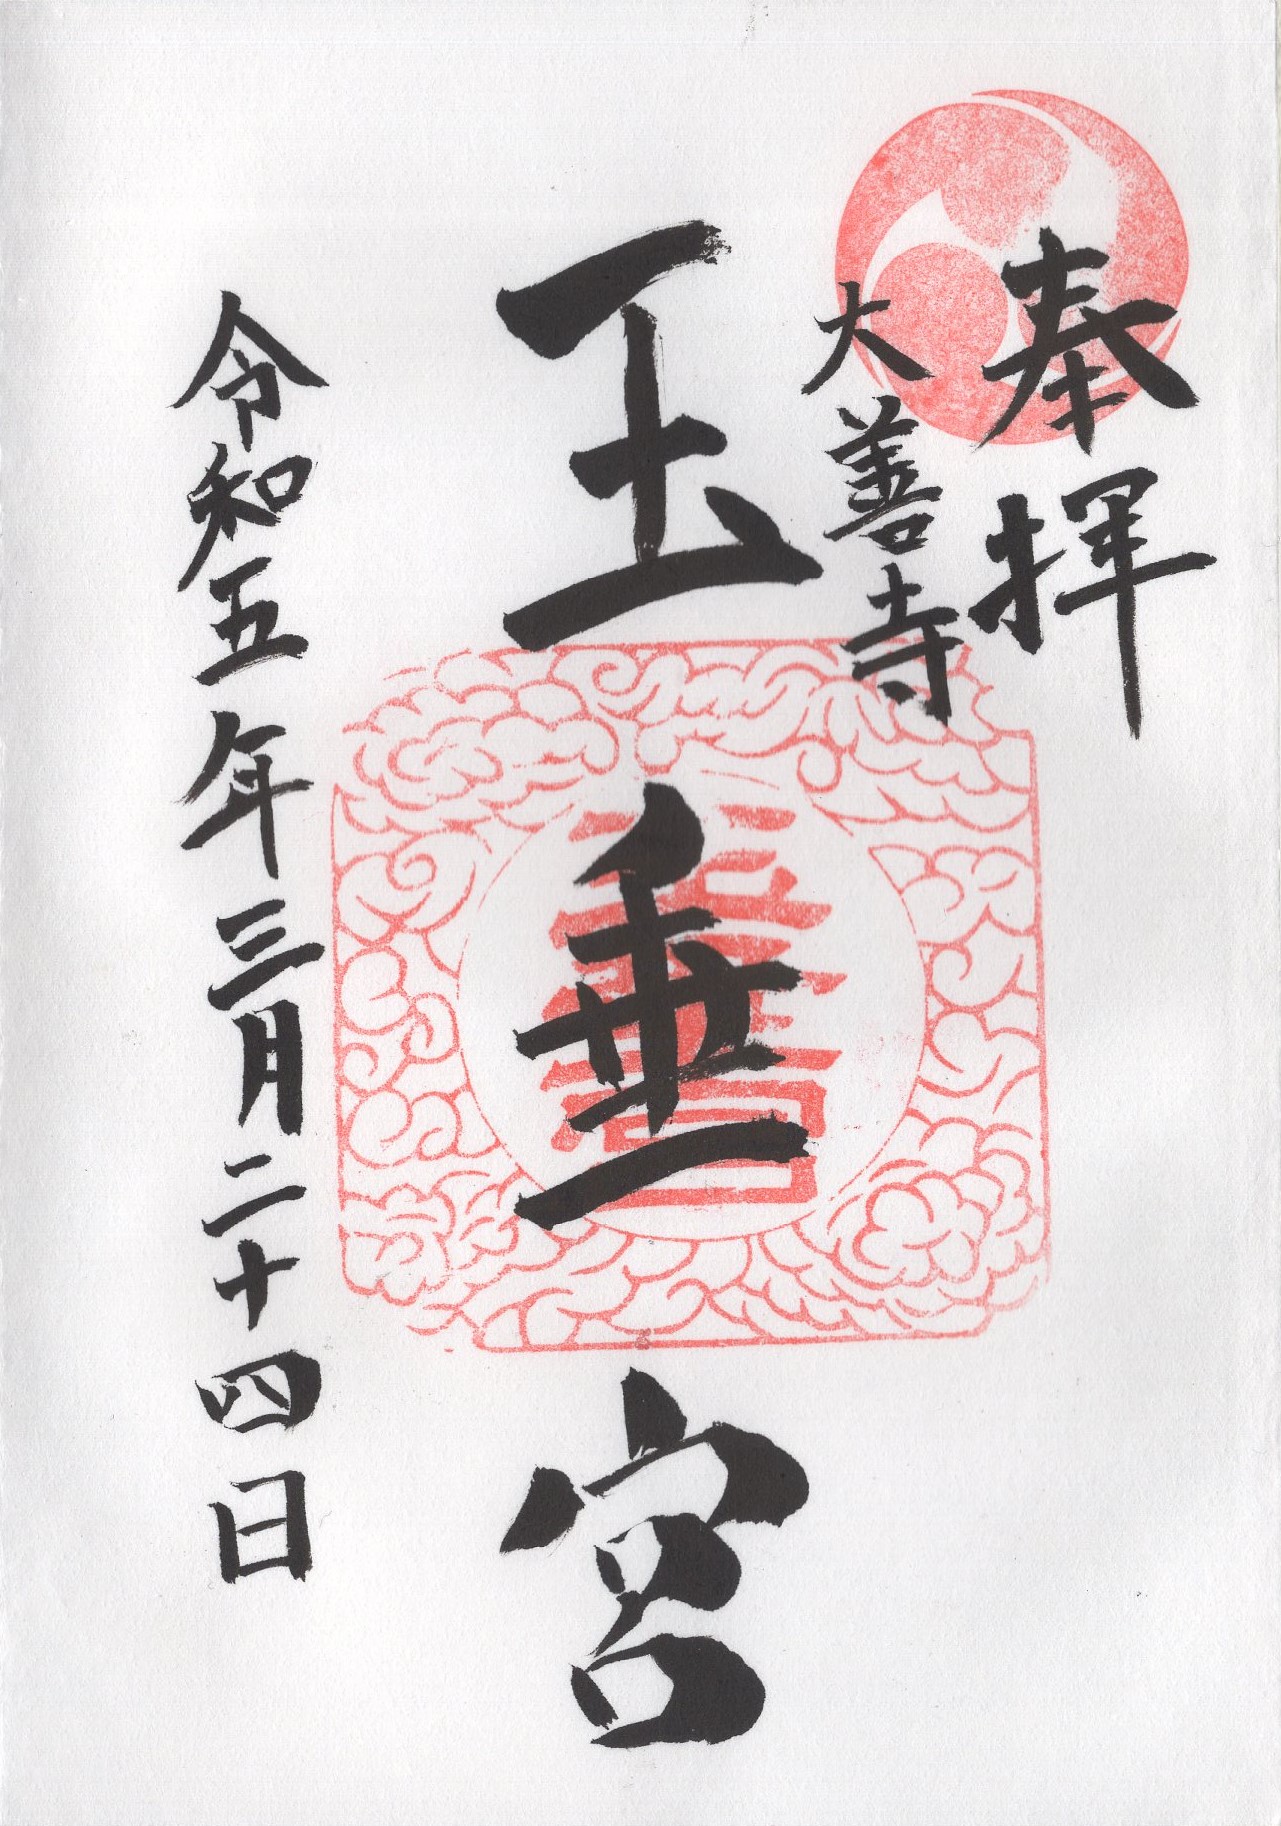 奉拝
大善寺
玉垂宮
令和五年三月二十四日